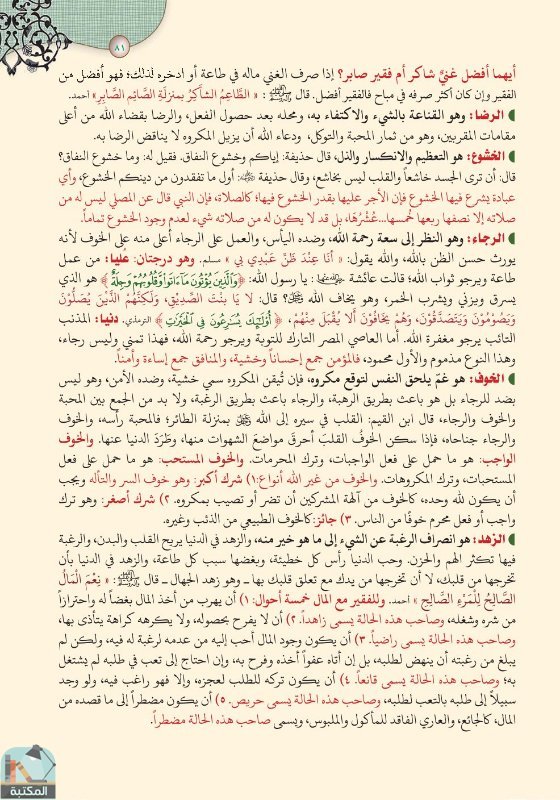 ٨١
أيهما أفضل غنيٌّ شاكر أم فقير صابر؟ إذا صرف الغني ماله في طاعة أو ادخره لذلك؛ فهو أفضل من
الفقير وإن كان أكثر صرفه في مباح فالفقير أفضل. قال ﷺ: « الطَّاعِمُ الشَّاكِرُ بمنزلَةِ الصَّائِمِ الصَّابِرِ» أحمد.
الرضا: وهو القناعة بالشيء والاكتفاء به، ومحله بعد حصول الفعل، والرضا بقضاء الله من أعلى
مقامات المقربين، وهو من ثمار المحبة والتوكل، ودعاء الله أن يزيل المكروه لا يناقض الرضا به.
الخشوع: هو التعظيم والانكسار والذل، قال حذيفة: إياكم وخشوع النفاق. فقيل له: وما خشوع النفاق؟
قال: أن ترى الجسد خاشعاً والقلب ليس بخاشع، وقال حذيفة: أول ما تفقدون من دينكم الخشوع، وأي
عبادة يشرع فيها الخشوع فإن الأجر عليها بقدر الخشوع فيها؛ كالصلاة، فإن النبي قال عن المصلي ليس له من
صلاته إلا نصفها ربعها خُمسها...عُشْرُهَا، بل قد لا يكون له من صلاته شيء لعدم وجود الخشوع تماماً.
الرجاء: وهو النظر إلى سعة رحمة الله، وضده اليأس، والعمل على الرجاء أعلى منه على الخوف لأنه
يورث حسن الظن بالله، والله يقول: « أَنَا عِنْدَ ظَنِّ عَبْدِي بي » مسلم. وهو درجتان: عليا: من عمل
طاعة ويرجو ثواب الله؛ قالت عائشة: يا رسول الله: ﴿وَٱلَّذِينَ يُؤْتُونَ مَآ ءَاتَوا۟ وَّقُلُوبُهُمْ وَجِلَةٌ﴾ هو الذي
يسرق ويزني ويشرب الخمر، وهو يخاف الله ﷻ؟ قال: لا يَا بِنْتَ الصِّدِّيقِ، وَلَكِنَّهُمُ الَّذِينَ يُصَلُّونَ
وَيَصُومُونَ وَيَتَصَدَّقُونَ، وَهُمْ يَخَافُونَ أَلا يُقْبَلَ مِنْهُمْ، ﴿ أُو۟لَـٰٓئِكَ يُسَـٰرِعُونَ فِى ٱلْخَيْرَٰتِ ﴾ الترمذي. دنيا: المذنب
التائب يرجو مغفرة الله. أما العاصي المصر التارك للتوبة ويرجو رحمة الله، فهذا تمني وليس رجاء،
وهذا النوع مذموم والأول محمود، فالمؤمن جمع إحساناً وخشية، والمنافق جمع إساءة وأمناً.
الخوف: هو غمّ يلحق النفس لتوقع مكروه، فإن تُيقن المكروه سمي خشية، وضده الأمن، وهو ليس
بضد للرجاء بل هو باعث بطريق الرهبة، والرجاء باعث بطريق الرغبة، ولا بد من الجمع بين المحبة
والخوف والرجاء، قال ابن القيم: القلب في سيره إلى الله ﷻ بمنزلة الطائر؛ فالمحبة رأسه، والخوف
والرجاء جناحاه، فإذا سكن الخوفُ القلبَ أحرقَ مواضعَ الشهوات منها، وطَرَدَ الدنيا عنها. والخوف
الواجب: هو ما حمل على فعل الواجبات، وترك المحرمات. والخوف المستحب: هو ما حمل على فعل
المستحبات، وترك المكروهات. والخوف من غير الله أنواع:١) شرك أكبر: وهو خوف السر والتأله ويجب
أن يكون لله وحده، كالخوف من آلهة المشركين أن تضر أو تصيب بمكروه. ٢) شرك أصغر: وهو ترك
واجب أو فعل محرم خوفًا من الناس. ٣) جائز: كالخوف الطبيعي من الذئب وغيره.
الزهد: هو انصراف الرغبة عن الشيء إلى ما هو خير منه، والزهد في الدنيا يريح القلب والبدن، والرغبة
فيها تكثر الهم والحزن. وحب الدنيا رأس كل خطيئة، وبغضها سبب كل طاعة، والزهد في الدنيا بأن
تخرجها من قلبك، لا أن تخرجها من يدك مع تعلق قلبك بها ــ وهو زهد الجهال ــ قال ﷺ: « نِعْمَ الْمَالُ
الصَّالِحُ لِلْمَرْءِ الصَّالِحِ » أحمد. وللفقير مع المال خمسة أحوال: ١) أن يهرب من أخذ المال بغضاً له واحترازاً
من شره وشغله، وصاحب هذه الحالة يسمى زاهداً. ٢) أن لا يفرح بحصوله، ولا يكرهه كراهة يتأذى بها،
وصاحب هذه الحالة يسمى راضياً. ٣) أن يكون وجود المال أحب إليه من عدمه لرغبة له فيه، ولكن لم
يبلغ من رغبته أن ينهض لطلبه، بل إن أتاه عفواً أخذه وفرح به، وإن احتاج إلى تعب في طلبه لم يشتغل
به؛ وصاحب هذه الحالة يسمى قانعاً. ٤) أن يكون تركه للطلب لعجزه، وإلا فهو راغب فيه، ولو وجد
سبيلاً إلى طلبه بالتعب لطلبه، وصاحب هذه الحالة يسمى حريص. ٥) أن يكون مضطراً إلى ما قصده من
المال، كالجائع، والعاري الفاقد للمأكول والملبوس، ويسمى صاحب هذه الحالة مضطراً.
المكتبة